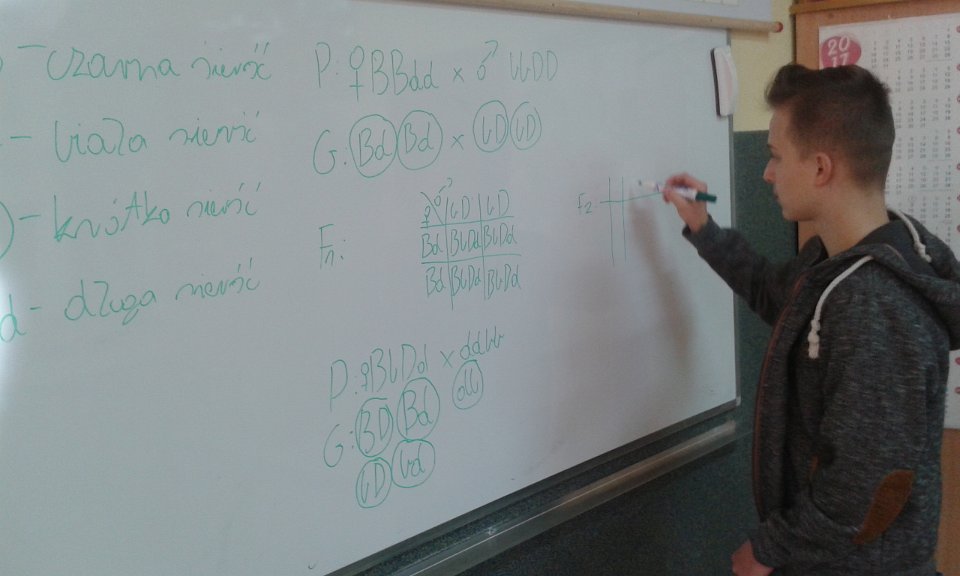 - czarna sierść
- biała sierść
- krótka sierść
d - długa sierść
P: ♀ BBdd x ♂ bbDD
G: Bd Bd x bD bD
F1:
♀ ♂ bD bD
Bd BbDd BbDd
Bd BbDd BbDd
P: ♀ BbDd x ddbb
G: BD Bd db
bD bd
F2
20
17